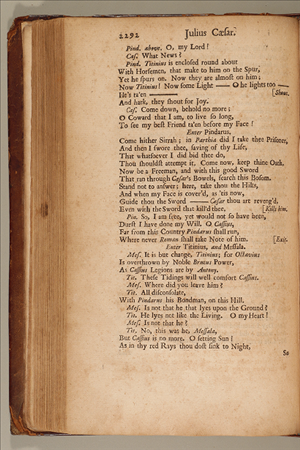 2292 Julius Cæsar.
Pind. above. O, my Lord!
Cas. What News?
Pind. Titinius is enclosed round about
With Horsemen, that make to him on the Spur,
Yet he spurs on. Now they are almost on him;
Now Titinius! Now some Light —— O he lights too —
He's ta'en ———— [Shout.
And hark, they shout for Joy.
Cas. Come down, behold no more;
O Coward that I am, to live so long,
To see my best Friend ta'en before my Face!
Enter Pindarus.
Come hither Sirrah; in Parthia did I take thee Prisoner,
And then I swore thee, saving of thy Life,
That whatsoever I did bid thee do,
Thou shouldst attempt it. Come now, keep thine Oath,
Now be a Freeman, and with this good Sword
That ran through Cæsar's Bowels, search this Bosom.
Stand not to answer; here, take thou the Hilts,
And when my Face is cover'd, as 'tis now,
Guide thou the Sword —— Cæsar thou art reveng'd,
Even with the Sword that kill'd thee. [Kills him.
Pin. So, I am free, yet would not so have been,
Durst I have done my Will. O Cassius,
Far from this Country Pindarus shall run,
Where never Roman shall take Note of him. [Exit.
Enter Titinius, and Messala.
Mes. It is but change, Titinius; for Octavius
Is overthrown by Noble Brutus Power,
As Cassius Legions are by Antony.
Tit. These Tidings will well comfort Cassius.
Mes. Where did you leave him?
Tit. All disconsolate,
With Pindarus his Bondman, on this Hill.
Mes. Is not that he that lyes upon the Ground?
Tit. He lyes not like the Living. O my Heart!
Mes. Is not that he?
Tit. No, this was he, Messala,
But Cassius is no more. O setting Sun!
As in thy red Rays thou dost sink to Night,
So